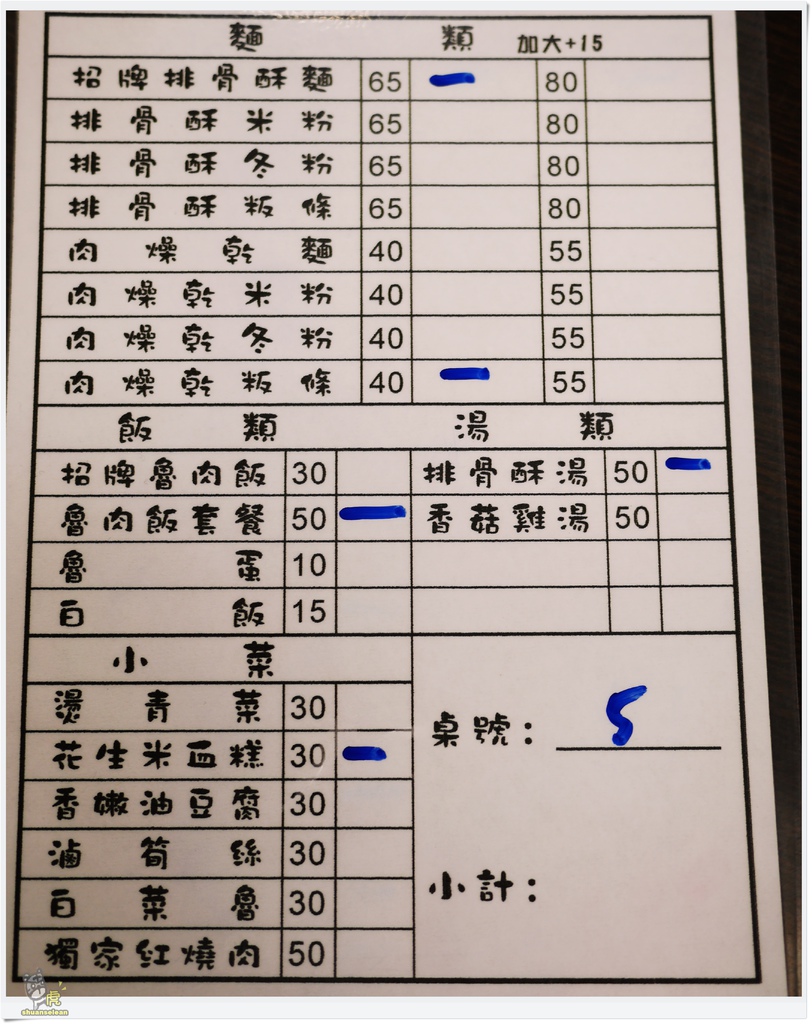 麵 類 加大+15
招牌排骨酥麵 65 80
排骨酥米粉 65 80
排骨酥冬粉 65 80
排骨酥粄條 65 80
肉燥乾麵 40 55
肉燥乾米粉 40 55
肉燥乾冬粉 40 55
肉燥乾粄條 40 55
飯 類 湯 類
招牌魯肉飯 30 排骨酥湯 50
魯肉飯套餐 50 香菇雞湯 50
魯蛋 10
白飯 15
小 菜
燙青菜 30
花生米血糕 30
香嫩油豆腐 30
滷筍絲 30
白菜魯 30
獨家紅燒肉 50
桌號: 5
小計:
虎
shuanselean